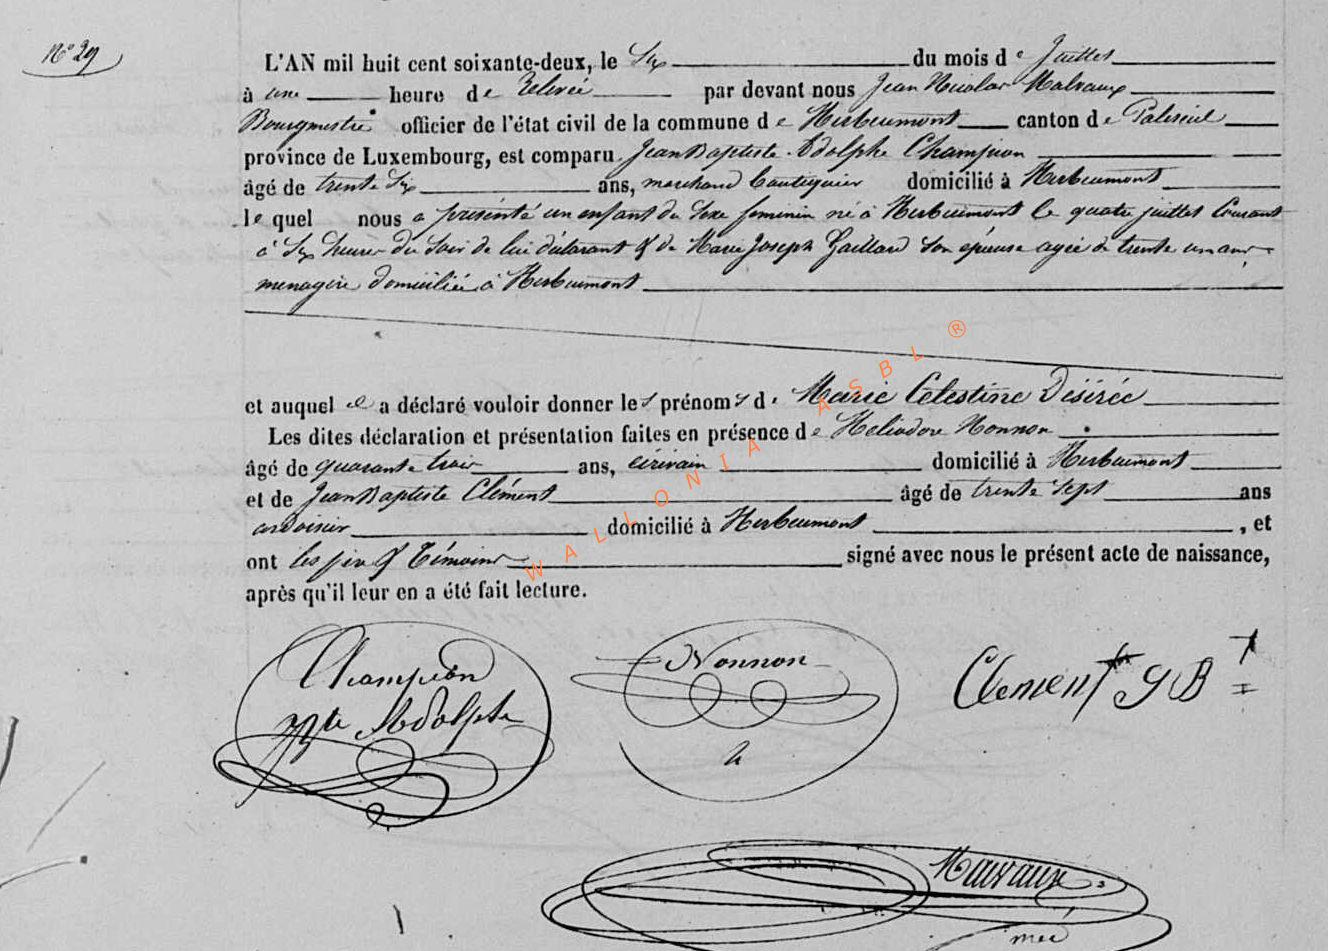 N° 29
L'AN mil huit cent soixante-deux, le Six du mois de Juillet
à une heure de Relevée par devant nous Jean Nicolas Malvaux
Bourgmestre officier de l'état civil de la commune de Herbeumont canton de Paliseul
province de Luxembourg, est comparu Jean Baptiste Adolphe Champion
âgé de trente Six ans, marchand boutiquier domicilié à Herbeumont
le quel nous a présenté un enfant du Sexe feminin né à Herbeumont le quatre juillet Courant
à Six heures du Soir de lui déclarant & de Marie Joseph Gaillard Son épouse agée de trente un ans
menagère domiciliée à Herbeumont
et auquel il a déclaré vouloir donner les prénoms de Marie Célestine Désirée
Les dites déclaration et présentation faites en présence de Héliodore Nonnon
âgé de quarante trois ans, écrivain domicilié à Herbeumont
et de Jean Baptiste Clément âgé de trente Sept ans
ardoisier domicilié à Herbeumont , et
ont les père & Témoins signé avec nous le présent acte de naissance,
après qu'il leur en a été fait lecture.
Champion
JBte Adolphe
Nonnon
h
Clement J B
Malvaux
WALLONIA ASBL ®